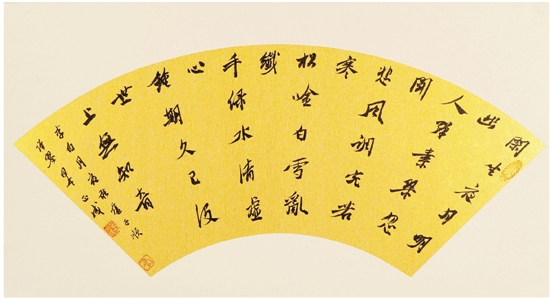 閑坐夜月明
幽
人彈素琴忽
聞
悲風調宛若
寒
松吟白雪亂
纖
手綠水清虛
心
鍾期久已没
世
上無知音
李白月夜聽盧子順
彈琴 正成